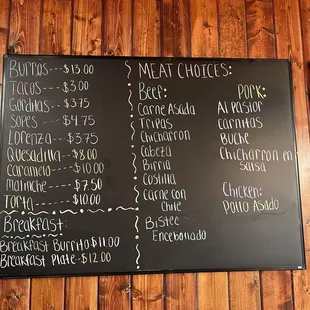 Burros---$13.00
Tacos---$3.00
Gorditas--$3.75
Sopes---$4.75
Lorenza---$3.75
Quesadilla--$8.00
Caramelo----$10.00
Malinche----$7.50
Torta-----$10.00
Breakfast:
Breakfast Burrito $11.00
Breakfast Plate--$12.00
MEAT CHOICES:
Beef:
Carne Asada
Tripas
Chicharron
Cabeza
Birria
Costilla
Carne con
Chile
Bistec
Encebollado
Pork:
Al Pastor
Carnitas
Buche
Chicharron en
Salsa
Chicken:
Pollo Asado